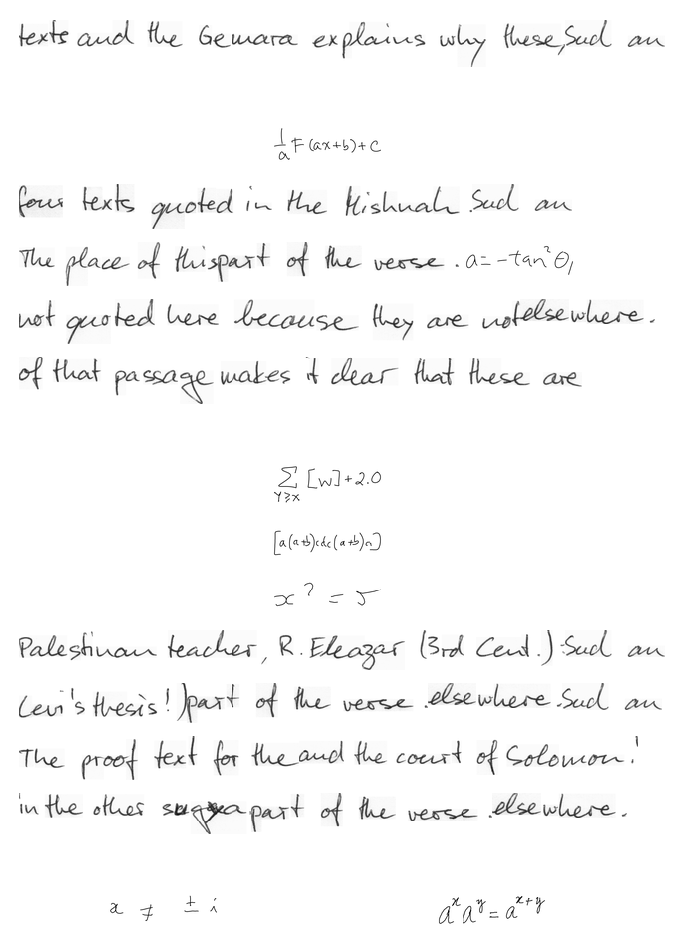 texts and the Gemara explains why these, Sud an
\frac{1}{a} F(ax+b)+C
four texts quoted in the Mishnah. Sud an
The place of thispart of the verse. a=-tan²θ,
not quoted here because they are notelsewhere.
of that passage makes it clear that these are
\sum_{Y≥X} [W]+2.0
[a(a+b)cdc(a+b)n]
x^? = 5
Palestinan teacher, R. Eleazar (3rd Cent.). Sud an
Levi's thesis! )part of the verse .elsewhere. Sud an
The proof text for the and the court of Solomon!'
in the other sugya part of the verse .elsewhere.
x ≠ ± i
a^x a^y = a^{x+y}